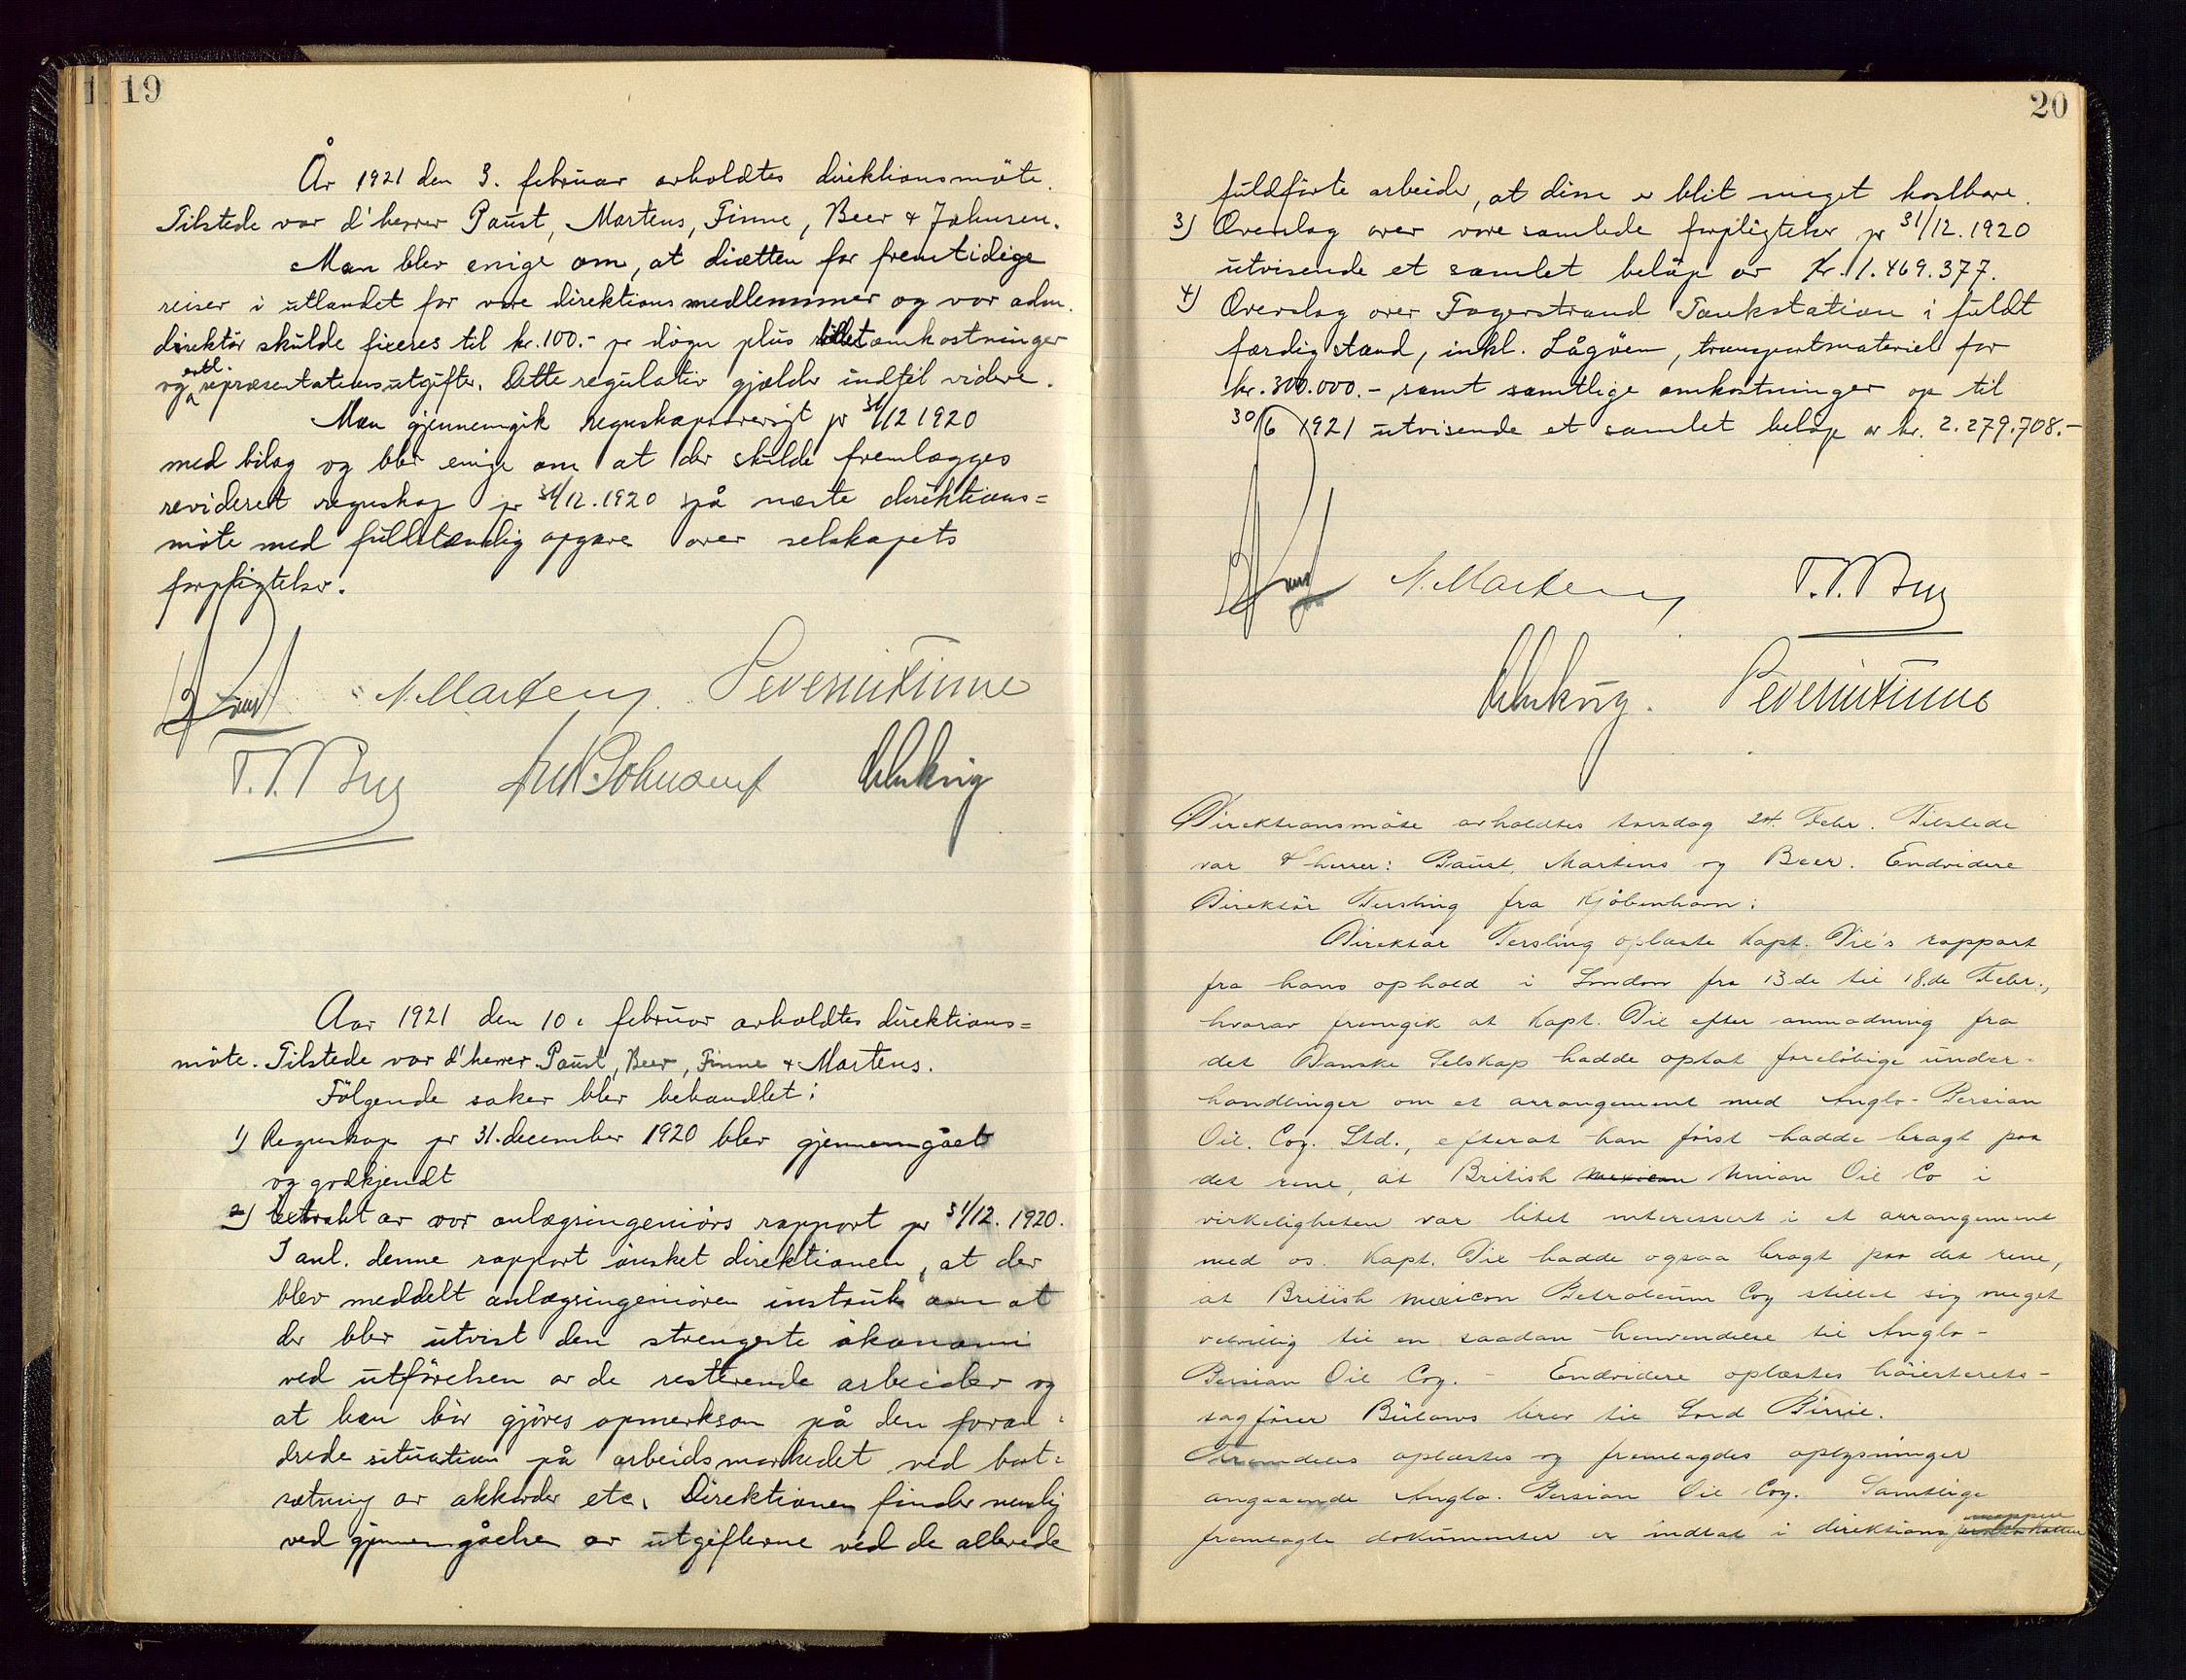 19
År 1921 den 3. februar avholdtes direktionsmöte.
Tilstede var d'herrer Paust, Martens, Finne, Beer & Johnsen.
Man blev enige om, at diætten for fremtidige
reiser i utlandet for vore direktionsmedlemmer og vor adm.
direktör skulde fixeres til kr. 100.- pr dögn plus billetomkostninger
og evtl. repræsentationsutgifter. Dette regulativ gjælder indtil videre.
Man gjennemgik regnskapsoversigt pr 31/12 1920
med bilag og blev enige om at der skulde fremlægges
revideret regnskap pr 31/12.1920 på neste direktions=
möte med fuldstændig opgave over selskapets
forpligtelser.
N. Martens Severin Finne
Aar 1921 den 10. februar avholdtes direktions=
möte. Tilstede var d'herrer Paust, Beer, Finne & Martens.
Fölgende saker blev behandlet:
1) Regnskap pr 31. december 1920 blev gjennemgået
og godkjendt
2) Extrakt av vor anlægsingeniörs rapport pr 31/12. 1920.
I anl. denne rapport önsket direktionen, at der
blev meddelt anlægsingeniören instruk om at
der blev utvist den strengeste ökonomi
ved utförelsen av de resterende arbeider og
at han bör gjöres opmerksom på den foran=
drede situation på arbeidsmarkedet ved bort=
sætning av akkorder etc. Direktionen finder nemlig
ved gjennemgåelse av utgifterne ved de allerede
20
fuldförte arbeider, at disse er blit meget kostbare.
3) Overslag over vore samlede forpligtelser pr 31/12.1920
utvisende et samlet belöp av Kr. 1.469.377.
4) Overslag over Fagerstrand Tankstation i fuldt
færdig stand, inkl. Lågöen, transportmateriel for
kr. 300.000.- samt samtlige omkostninger op til
30/6 1921 utvisende et samlet belöp av kr. 2.279.708.-
N. Martens
Severin Finne
Direktionsmöte avholdtes torsdag 24. Febr. Tilstede
var d'herrer: Paust, Martens og Beer. Endvidere
Direktör Tersling fra Kjöbenhavn:
Direktör Tersling oplæste Kapt. Die's rapport
fra hans ophold i London fra 13de til 18.de Febr.,
hvorav fremgik at Kapt. Die efter anmodning fra
det Danske Selskap hadde optat foreløbige under-
handlinger om et arrangement med Anglo-Persian
Oil. Coy. Ltd., efterat han först hadde bragt paa
det rene, at British mexican Union Oil Co i
virkeligheten var litet interessert i et arrangement
med os. Kapt. Die hadde ogsaa bragt paa det rene,
at British mexican Petroleum Coy stillet sig meget
velvillig til en saadan henvendelse til Anglo-
Persian Oil Coy. - Endvidere oplæstes höiesterets-
sagförer Bülows brev til Lord Pirrie.
Fremdeles oplæstes og fremlagdes oplysninger
angaaende Anglo-Persian Oil Coy. Samtlige
fremlagte dokumenter er indtat i direktions mappen